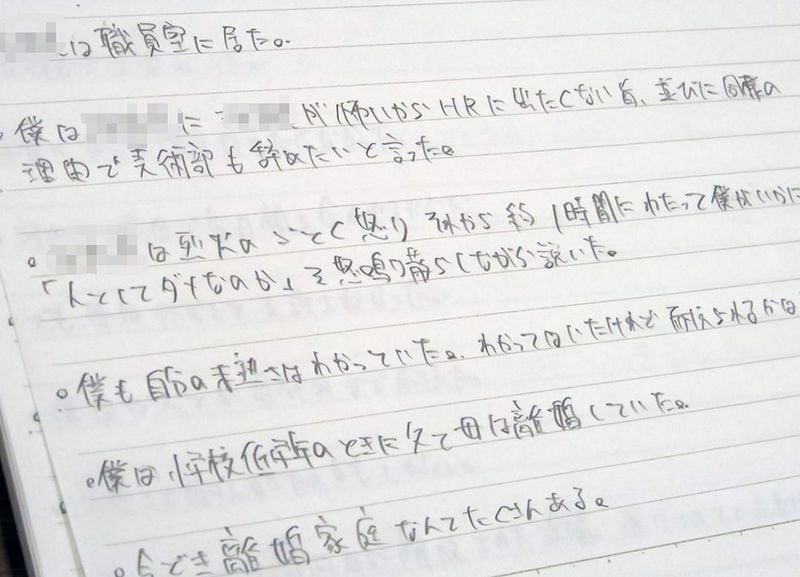 は職員室に居た。
。僕は に が怖いからHRに出たくない旨、並びに同様の
理由で美術部も辞めたいと言った。
。 は烈火のごとく怒り それから約1時間にわたって僕がいかに
「人としてダメなのか」を怒鳴り散らしながら説いた。
。僕も自分の未熟さはわかっていた。わかってはいたけれど耐えられるかは
。僕は小学校低学年のときに父と母は離婚していた。
。今どき離婚家庭なんてたくさんある。